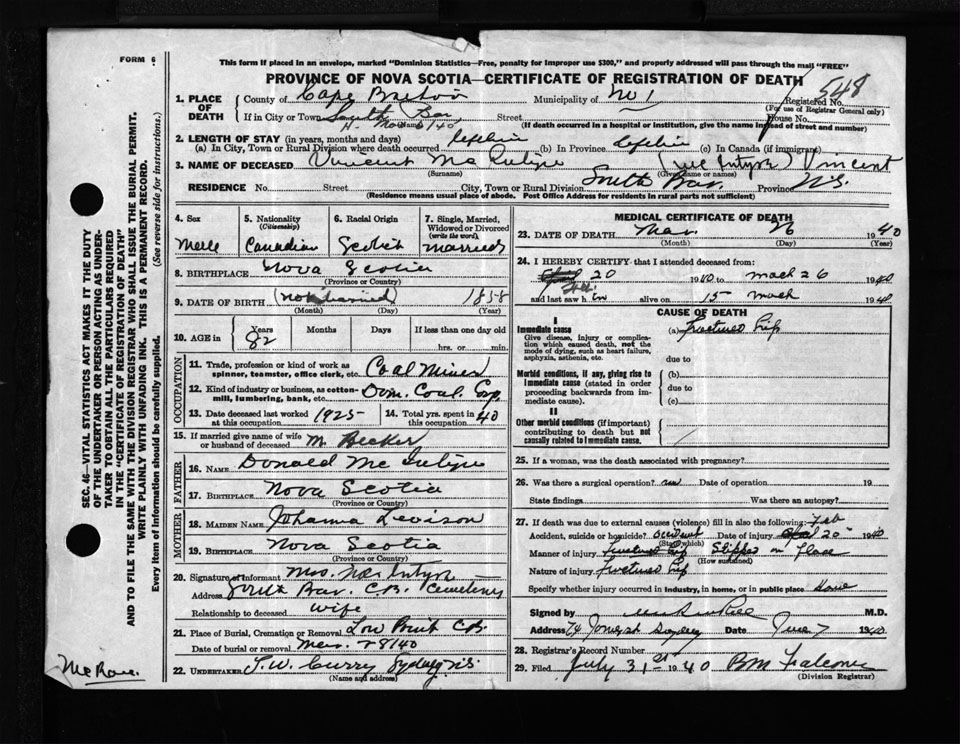 FORM 6
This form if placed in an envelope, marked "Dominion Statistics—Free, penalty for improper use $300," and properly addressed will pass through the mail "FREE"
PROVINCE OF NOVA SCOTIA—CERTIFICATE OF REGISTRATION OF DEATH
548
1. PLACE OF DEATH County of Cape Breton Municipality of No 1 Registered No.
(For use of Registrar General only)
If in City or Town South Bar Street House No.
(If death occurred in a hospital or institution, give the name instead of street and number)
2. LENGTH OF STAY (in years, months and days)
(a) In City, Town or Rural Division where death occurred lifetime (b) In Province lifetime (c) In Canada (if immigrant)
3. NAME OF DECEASED Vincent Mc Intyre (Mc Intyre) Vincent
(Surname) (Given name or names)
RESIDENCE No. Street City, Town or Rural Division South Bar Province N.S.
(Residence means usual place of abode. Post Office Address for residents in rural parts not sufficient)
4. Sex Male
5. Nationality (Citizenship) Canadian
6. Racial Origin
7. Single, Married, Widowed or Divorced (write the word) married
8. BIRTHPLACE Nova Scotia
(Province or Country)
9. DATE OF BIRTH (not 1858
(Month) (Day) (Year)
10. AGE in Years 82 Months Days If less than one day old
hrs. or min.
OCCUPATION
11. Trade, profession or kind of work as spinner, teamster, office clerk, etc. Coal Miner
12. Kind of industry or business, as cotton-mill, lumbering, bank, etc. Dom. Coal Corp
13. Date deceased last worked at this occupation 1925
14. Total yrs. spent in this occupation 40
15. If married give name of wife or husband of deceased M. Becker
FATHER
16. NAME Donald Mc Intyre
17. BIRTHPLACE Nova Scotia
(Province or Country)
MOTHER
18. MAIDEN NAME Johanna Levison
19. BIRTHPLACE Nova Scotia
(Province or Country)
20. Signature of Informant Mrs. Mc Intyre
Address South Bar C.B. Cemetery
Relationship to deceased wife
21. Place of Burial, Cremation or Removal Low Point C.B.
Date of burial or removal Mar. 28/40
22. UNDERTAKER T.W. Curry Sydney N.S.
(Name and address)
MEDICAL CERTIFICATE OF DEATH
23. DATE OF DEATH Mar 26 1940
(Month) (Day) (Year)
24. I HEREBY CERTIFY that I attended deceased from:
20 1940 to mach 26 1940
Feb.
and last saw h im alive on 15 mach 1940
CAUSE OF DEATH
I
Immediate cause
Give disease, injury or complication which caused death, not the mode of dying, such as heart failure, asphyxia, asthenia, etc.
(a) Fractured hip
due to
Morbid conditions, if any, giving rise to immediate cause (stated in order proceeding backwards from immediate cause).
(b)
due to
(c)
II
Other morbid conditions (if important) contributing to death but not causally related to immediate cause.
25. If a woman, was the death associated with pregnancy?
26. Was there a surgical operation? Date of operation 19
State findings Was there an autopsy?
27. If death was due to external causes (violence) fill in also the following: Feb
Accident, suicide or homicide? accident Date of injury 20 1940
(State which)
Manner of injury Fractured hip Slipped on
(How sustained)
Nature of injury Fractured hip
Specify whether injury occurred in industry, in home, or in public place Home
Signed by M.D.
Address 74 Sydney Date June 7 1940
28. Registrar's Record Number
29. Filed July 31st 1940 B M Falconer
(Division Registrar)
SEC. 46—VITAL STATISTICS ACT MAKES IT THE DUTY
OF THE UNDERTAKER OR PERSON ACTING AS UNDER-
TAKER TO OBTAIN ALL THE PARTICULARS REQUIRED
IN THE "CERTIFICATE OF REGISTRATION OF DEATH"
AND TO FILE THE SAME WITH THE DIVISION REGISTRAR WHO SHALL ISSUE THE BURIAL PERMIT.
WRITE PLAINLY WITH UNFADING INK. THIS IS A PERMANENT RECORD.
Every item of information should be carefully supplied. (See reverse side for instructions.)